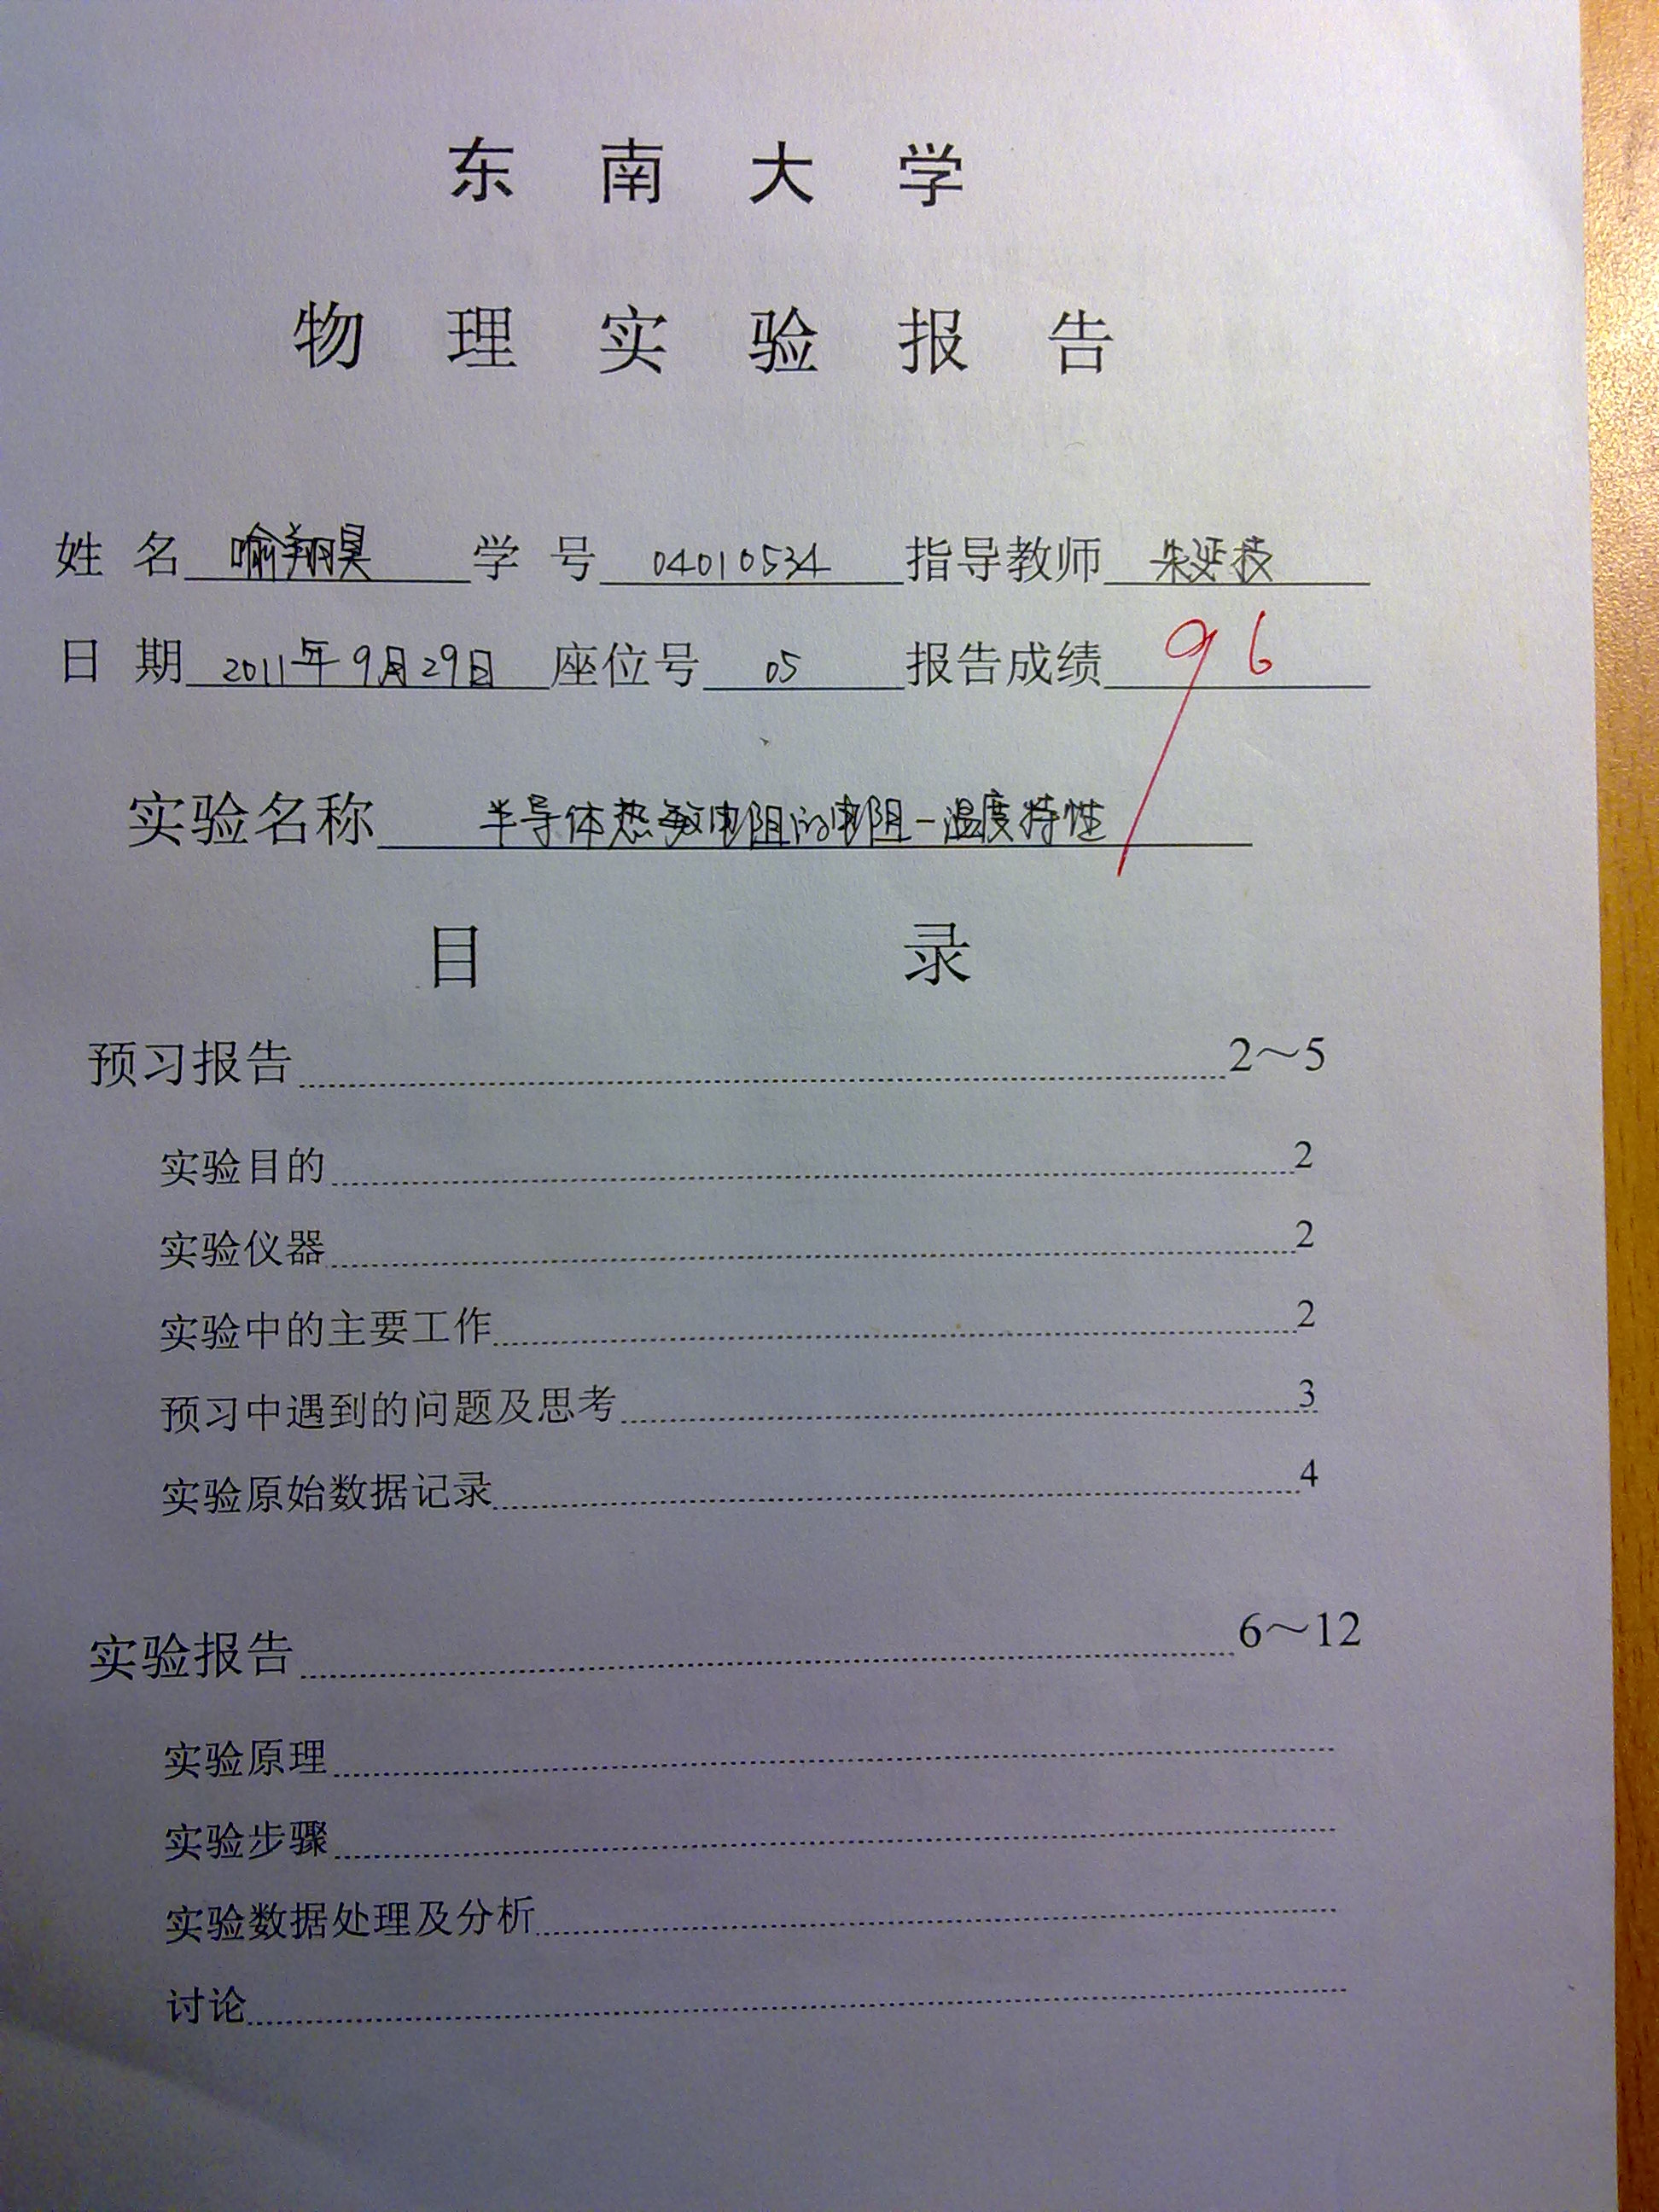 东南大学
物理实验报告
姓名 喻翔昊 学号 04010534 指导教师 朱延技
日期 2011年9月29日 座位号 05 报告成绩 96
实验名称 半导体热敏电阻的电阻-温度特性
目录
预习报告 2～5
实验目的 2
实验仪器 2
实验中的主要工作 2
预习中遇到的问题及思考 3
实验原始数据记录 4
实验报告 6～12
实验原理
实验步骤
实验数据处理及分析
讨论